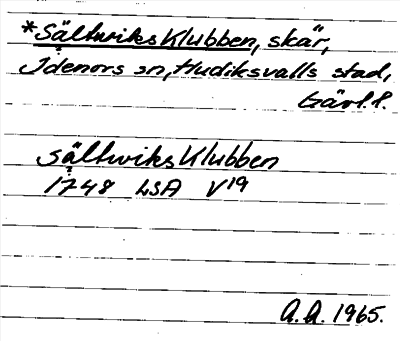 *Sältwiks Klubben, skär,
Idenors sn, Hudiksvalls stad,
Gävl. l.
Sältwiks Klubben
1748 LSA V19
A.A. 1965.